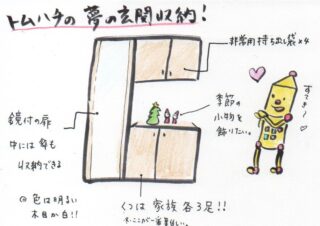 トムハチの夢の玄関収納!
非常用持ち出し袋×4
すてき~♡
季節の
小物を
飾りたい。
鏡付の扉
中には傘も
収納できる
@ 色は明るい
木目か白!!
くつは家族各3足!!
※ここが一番難しい。